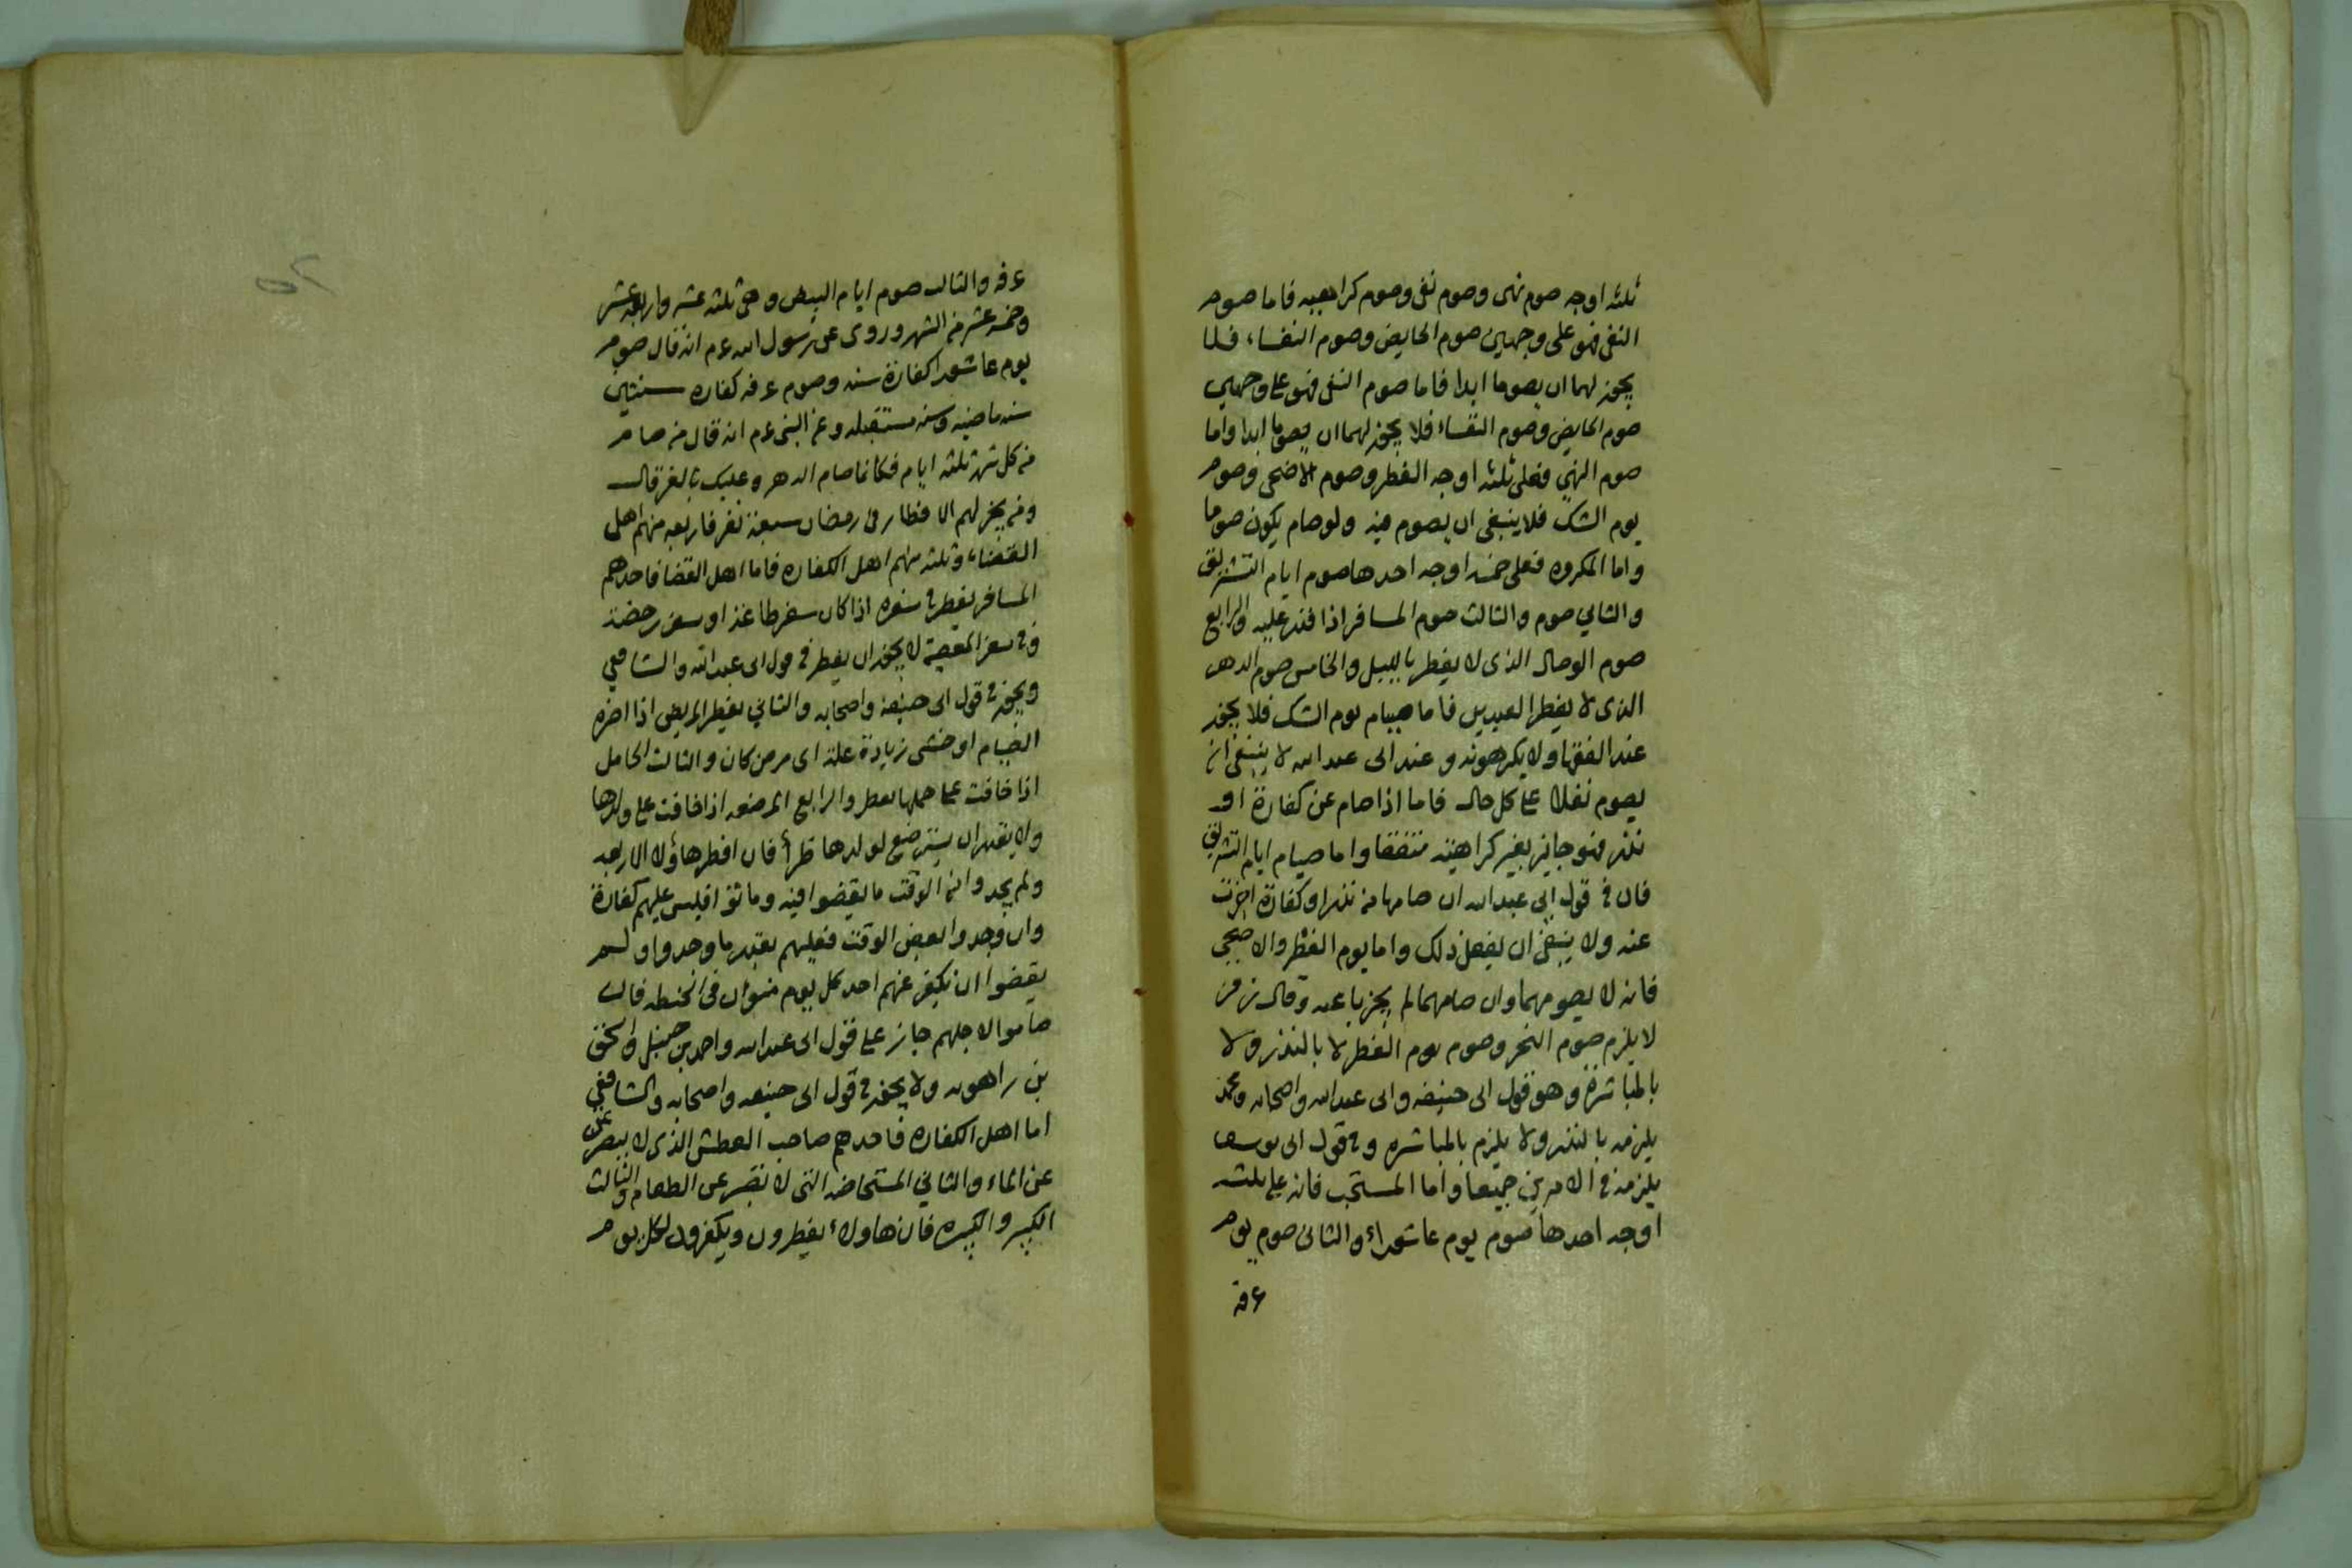 ثلثه اوجه صوم نهى وصوم نفى وصوم كراهيه فاما صوم
النفى فهو على وجهين صوم الحايض وصوم النفساء فلا
يجوز لهما ان يصوما ابدا فاما صوم النفى فهو على وجهين
صوم الحايض وصوم النفساء فلا يجوز لهما ان يصوما ابدا واما
صوم النهى فعلى ثلثه اوجه الفطر وصوم الاضحى وصوم
يوم الشك فلا ينبغى ان يصوم فيه ولو صام يكون صوما
واما المكروه فعلى خمسه اوجه احدها صوم ايام التشريق
والثاني صوم والثالث صوم المسافر اذا قدر عليه والرابع
صوم الوصال الذى لا يفطر بالليل والخامس صوم الدهر
الذى لا يفطر العيدين فاما صيام يوم الشك فلا يجوز
عند الفقها ولا يكرهونه وعند ابى عبد الله لا ينبغى ان
يصوم نفلا على كل حال فاما اذا صام عن كفارة او
نذر فهو جايز بغير كراهيته متفقا واما صيام ايام التشريق
فان فى قول ابى عبد الله ان صامها من نذر او كفارة اجزت
عنه ولا ينبغى ان يفعل ذلك واما يوم الفطر والاضحى
فانه لا يصومهما وان صامهما لم يجزيا عنه وقال زفر
لا يلزم صوم النحر وصوم يوم الفطر لا بالنذر ولا
بالمباشرة وهو قول ابى حنيفه وابى عبد الله واصحابه ومحمد
يلزمه بالنذر ولا يلزم بالمباشره وفى قول ابى يوسف
يلزمه فى الامرين جميعا واما المستحب فانه على ثلثه
اوجه احدها صوم يوم عاشوراء والثانى صوم يوم
عرفة
عرفه والثالث صوم ايام البيض وهى ثلثه عشر واربعه عشر
وخمسه عشر من الشهر وروى عن رسول الله عم انه قال صوم
يوم عاشورا كفارة سنه وصوم عرفه كفاره سنتين
سنه ماضيه وسنه مستقبله وعن النبى عم انه قال من صام
من كل شهر ثلثه ايام فكانما صام الدهر وعليك بالغر قال
ومن يجز لهم الافطار فى رمضان سبعة نفر فاربعه منهم اهل
القضاء وثلثه منهم اهل الكفاره فاما اهل القضا فاحدهم
المسافر يفطر فى سفره اذا كان سفر طاعة او سفر رخصة
وفى سفر المعصية لا يجوز ان يفطر فى قول ابى عبد الله والشافعي
ويجوز فى قول ابى حنيفة واصحابه والثاني يفطر المريض اذا اضره
الصيام او خشى زيادة علة اى مرض كان والثالث الحامل
اذا خافت على حملها يفطر والرابع المرضعه اذا خافت على ولدها
ولا يقدر ان يسترضع لولدها ظرأ فان افطر هاؤلا الاربعه
ولم يجدوا من الوقت ما يقضوا فيه وماتوا فليس عليهم كفارة
وان وجدوا بعض الوقت فعليهم بقدر ما وجدوا ولم
يقضوا ان يكفر عنهم احد كل يوم منوان فى الحنطه فان
صاموا لاجلهم جاز على قول ابى عبد الله واحمد بن حنبل واسحق
بن راهويه ولا يجوز فى قول ابى حنيفه واصحابه والشافعي
اما اهل الكفاره فاحدهم صاحب العطش الذى لا يصبر عن
عن الماء والثاني المستحاضه التى لا تصبر عن الطعام والثالث
الكبير والكبيره فان هاولاء يفطرون ويكفرون لكل يوم